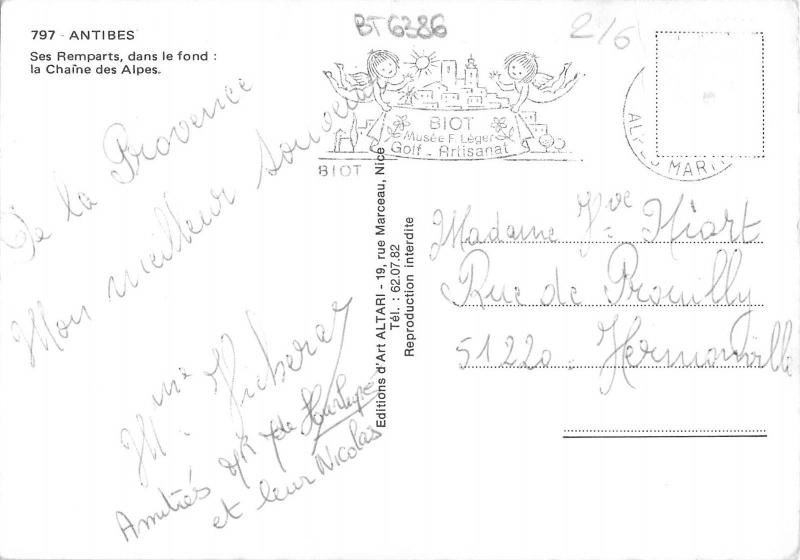 BT 6386
2/6
797 - ANTIBES
Ses Remparts, dans le fond :
la Chaîne des Alpes.
BIOT
Musée F. Léger
Golf - Artisanat
BIOT
MARIT
De la Provence
Mon meilleur souvenir
Mme
Amitiés Mr Mde
et leur Nicolas
Editions d'Art ALTARI - 19, rue Marceau, Nice
Tél. : 62.07.82
Reproduction interdite
Madame Vve Hiart
Rue de Prouilly
51220 - Hermonville